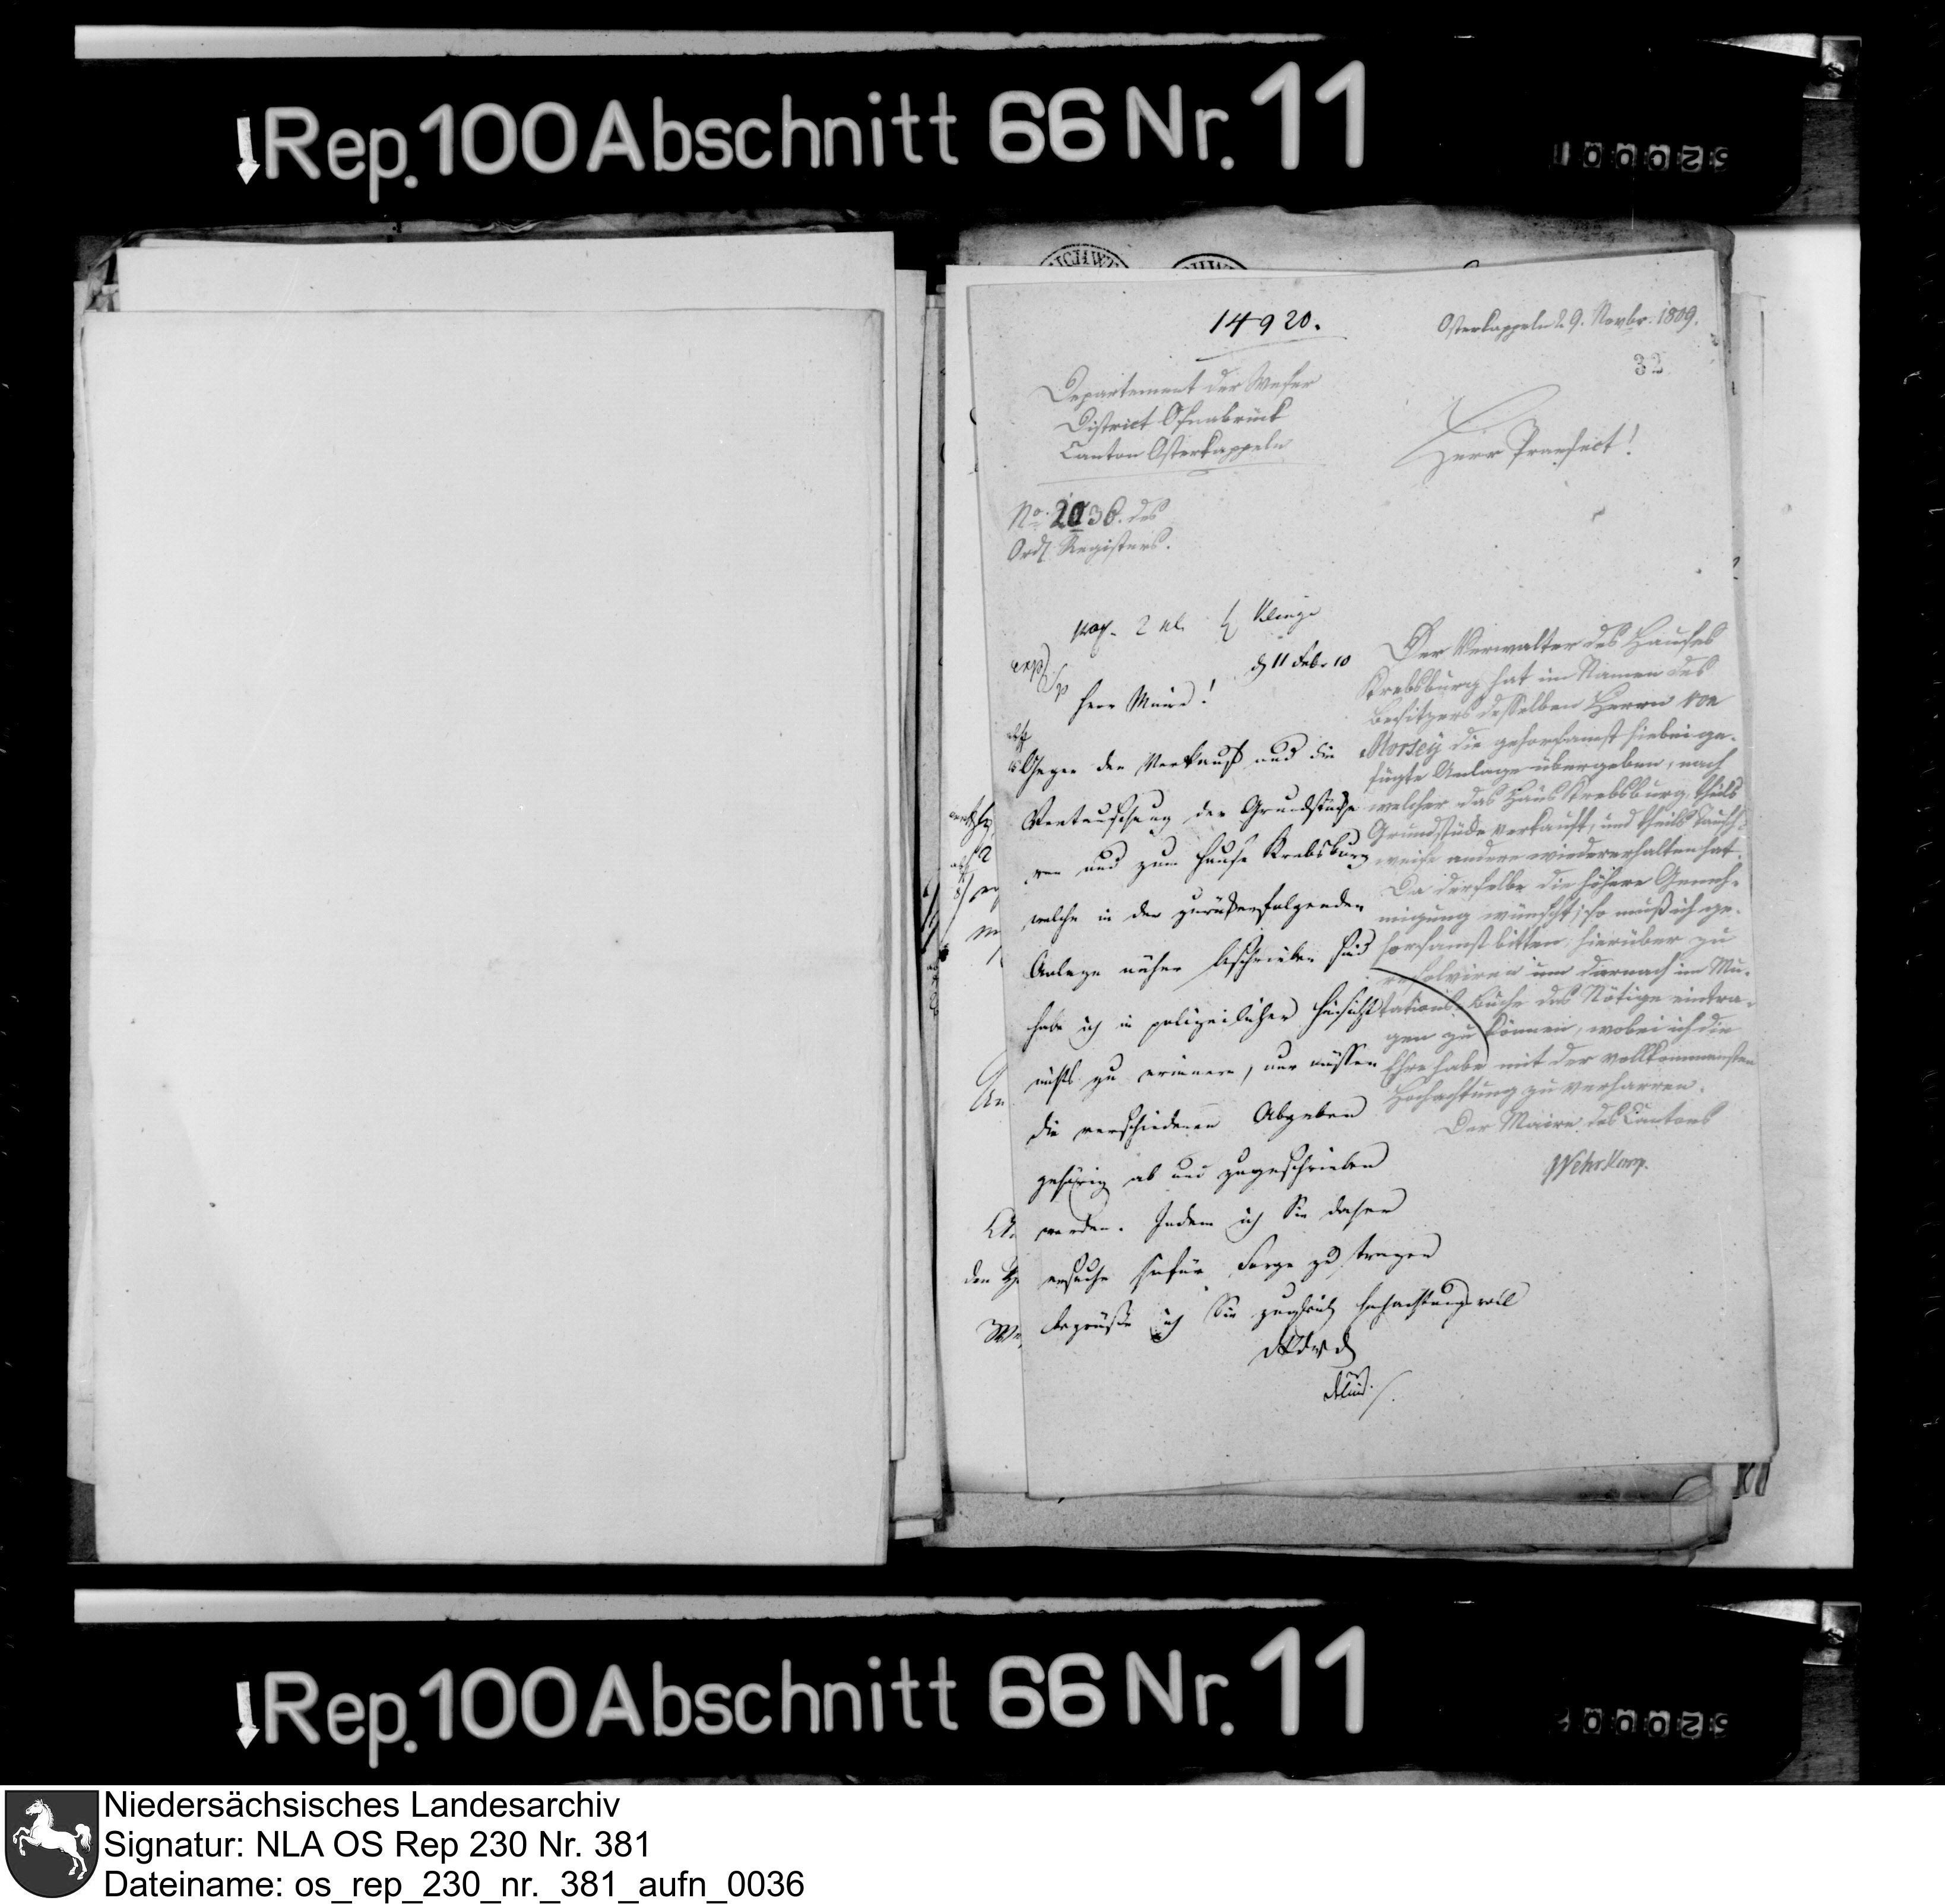 Rep. 100 Abschnitt 66 Nr. 11
14920.
Osterkappeln d. 9. Novbr. 1809.
32
Departement der Weser
District Osnabrück
Canton Osterkappeln
Herr Praefect!
No. 2036. des
Ord. Registers.
Der Verwalter des Hauses
Krebsburg hat im Namen des
Besitzers desselben Herrn von
Morsey die gehorsamst hiebei ge-
fügte Anlage übergeben, nach
welcher das Haus Krebsburg, theils
Grundstücke verkauft, und theils tausch-
weise andere wiedererhalten hat.
Da derselbe die höhere Geneh-
migung wünscht; so muß ich ge-
horsamst bitten, hierüber zu
resolviren um darnach im Mu-
tations-Buche das Nötige eintra-
gen zu können, wobei ich die
Ehre habe mit der vollkommensten
Hochachtung zu verharren.
Der Maire des Cantons
Wehrkamp.
d 11 Febr 10
Herr Maire!
Gegen den Verkauf und die
Vertauschung der Grundstücke
von und zum Hause Krebsburg
welche in der zurückerfolgenden
Anlage näher beschrieben sind
habe ich in polizeilicher Hinsicht
nichts zu erinnern, nur müssen
die verschiedenen Abgaben
gehörig ab und zugeschrieben
werden. Indem ich Sie daher
ersuche hefür Sorge zu tragen
begrüße ich Sie zugleich hochachtungsvoll
Rep. 100 Abschnitt 66 Nr. 11
Niedersächsisches Landesarchiv
Signatur: NLA OS Rep 230 Nr. 381
Dateiname: os_rep_230_nr._381_aufn_0036